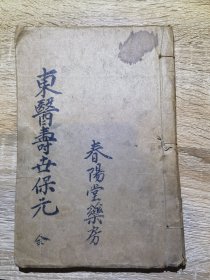 東醫壽世保元 全
春陽堂藥房